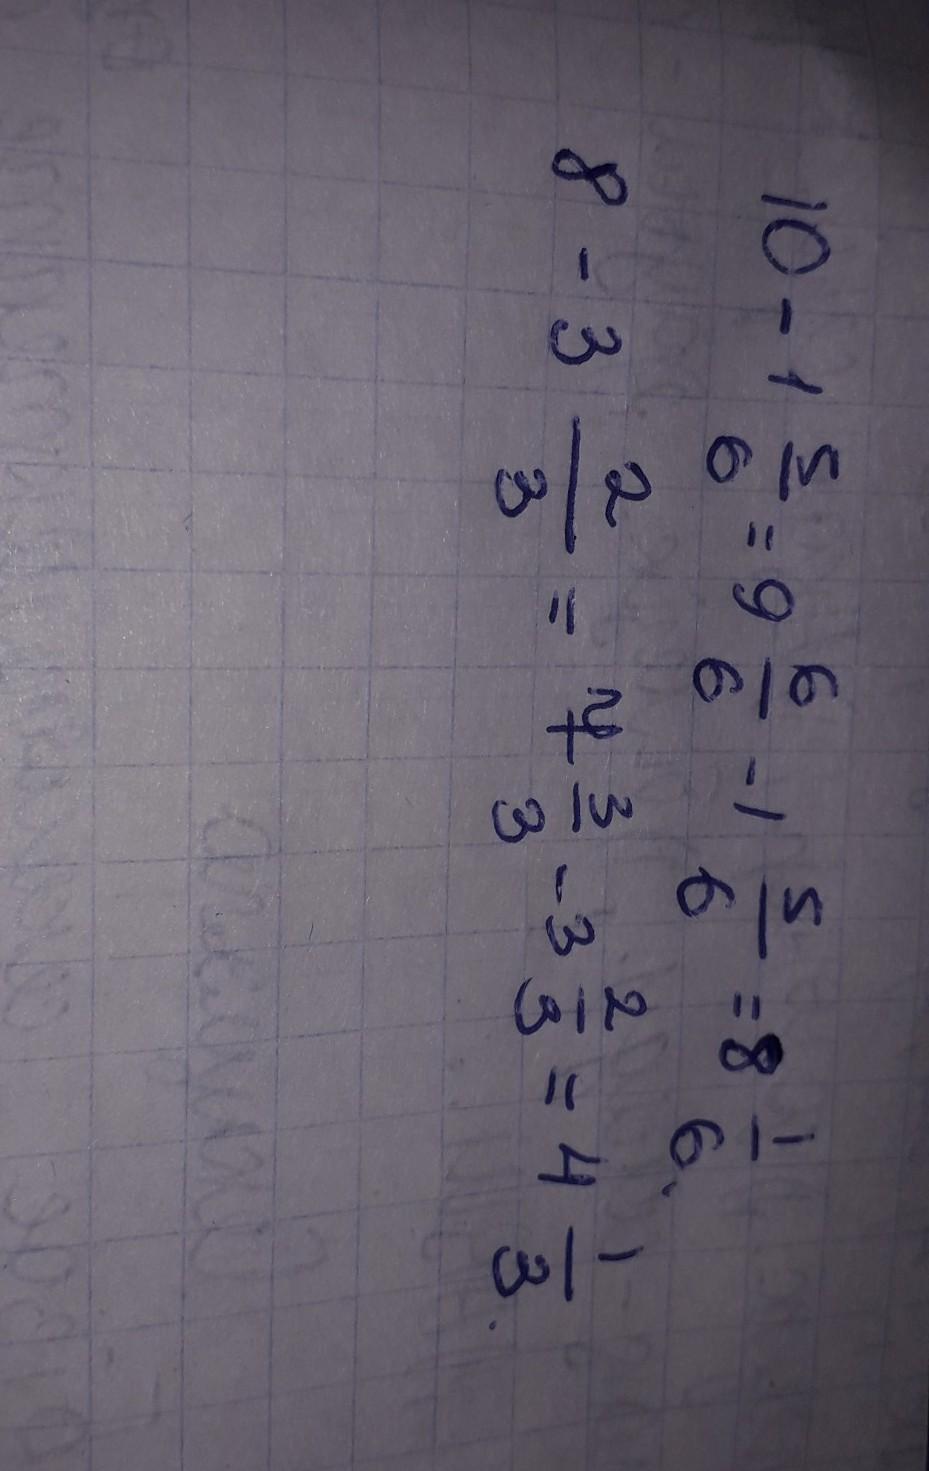 10 - 1 5/6 = 9 6/6 - 1 5/6 = 8 1/6.
8 - 3 2/3 = 7 3/3 - 3 2/3 = 4 1/3.